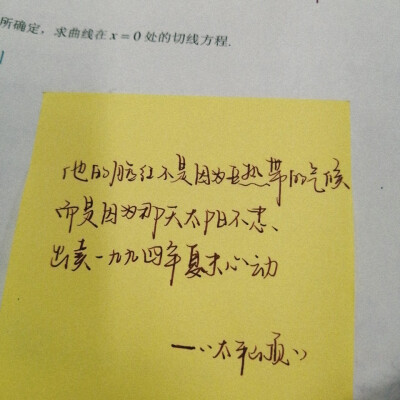 所确定，求曲线在 x = 0 处的切线方程.
他的脸红不是因为亚热带的气候
而是因为那天太阳不忠、
出卖一九九四年夏末心动
——《太平山顶》